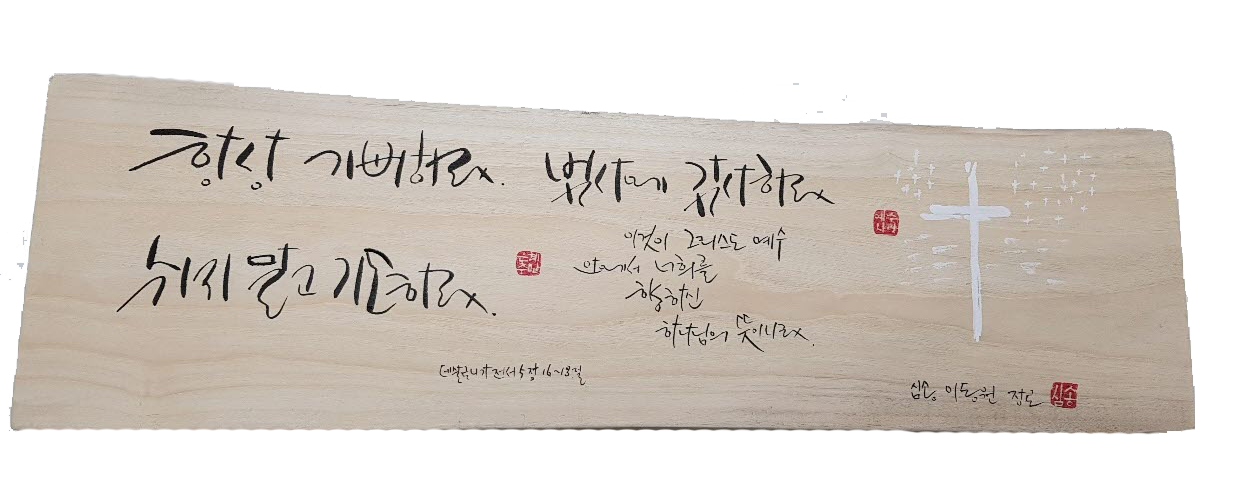 항상 기뻐하라.
쉬지말고 기도하라.
범사에 감사하라
이것이 그리스도 예수
안에서 너희를
향하신
하나님의 뜻이니라.
데살로니가전서 5장 16~18절
심송 이동원 장로
심송